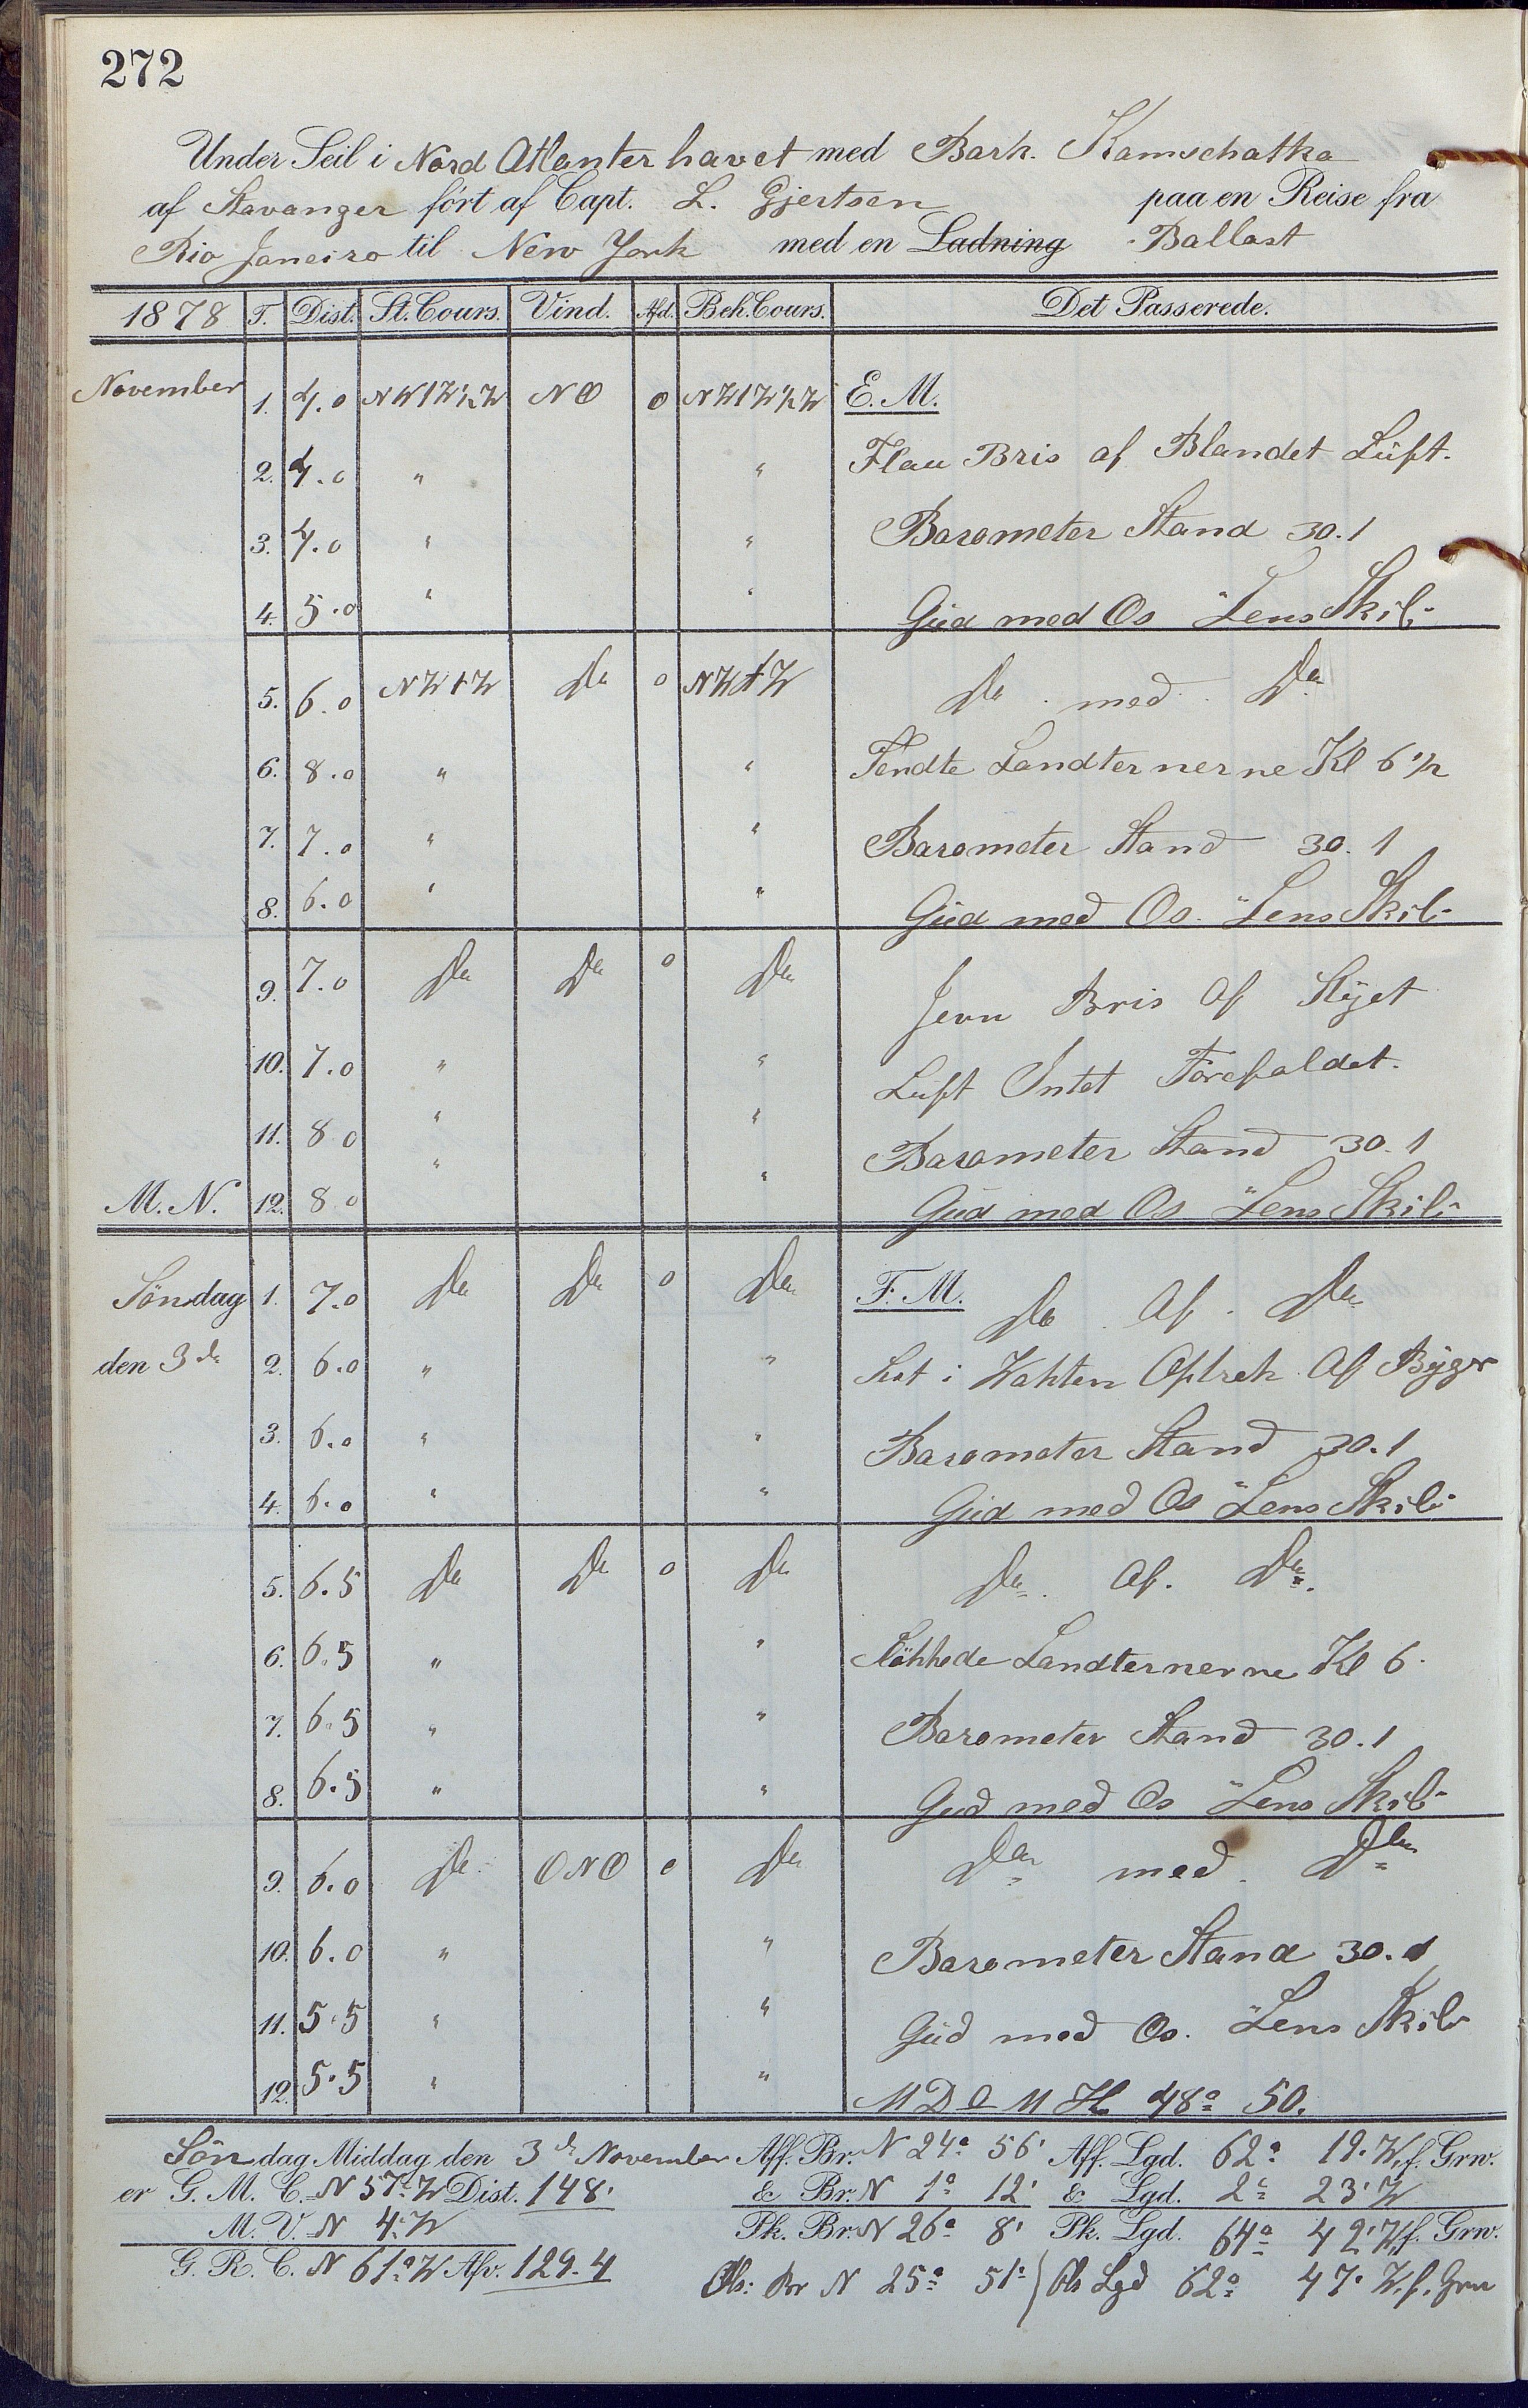 272
Under Seil i Nord Atlanter havet med Bark. Kamschatka
af Stavanger ført af Capt. L. Gjertsen paa en Reise fra
Rio Janeiro til New York med en Ladning Ballast
1878 T. Dist. St. Cours. Vind. Afd. Beh. Cours. Det Passerede.
November 1. 4.0 NWtW½W NO 0 NWtW½W E. M.
2. 4.0 " " Flau Bris af Blandet Luft.
3. 4.0 " " Barometer Stand 30.1
4. 5.0 " " Gud med Os Lens Skib
5. 6.0 NWtW Do 0 NWtW Do med Do
6. 8.0 " " Tendte Landternerne Kl 6½
7. 7.0 " " Barometer Stand 30.1
8. 6.0 " " Gud med Os Lens Skib
9. 7.0 Do Do 0 Do Jevn Bris Af Skyet
10. 7.0 " " Luft Intet Forefaldet.
11. 8 0 " " Barometer Stand 30.1
M. N. 12. 8 0 " " Gud med Os Lens Skib
Søndag 1. 7.0 Do Do 0 Do F. M. Do Af Do
den 3de 2. 6.0 " " Sist i Wakten Optrek Af Byger
3. 6.0 " " Barometer Stand 30.1
4. 6.0 " " Gud med Os Lens Skib
5. 6.5 Do Do 0 Do Do Af. Do
6. 6.5 " " Slökkede Landternerne Kl 6.
7. 6.5 " " Barometer Stand 30.1
8. 6.5 " " Gud med Os Lens Skib
9. 6.0 Do ONO 0 Do Do med Do
10. 6.0 " " Barometer Stand 30.1
11. 5.5 " " Gud med Os. Lens Skib
12. 5.5 " " 48° 50.
Søndag Middag den 3de November Aff. Br. N 24° 56' Aff. Lgd. 62° 19' W. f. Grw.
er G. M. C. N 57° W Dist. 148' & Br. N 1° 12' & Lgd. 2° 23' W
M. V. N 4° W Pk. Br. N 26° 8' Pk. Lgd. 64° 42' W f. Grw.
G. R. C. N 61° W Afv. 129.4 Obs: Br N 25° 51' Obs Lgd 62° 47' W. f. Grw